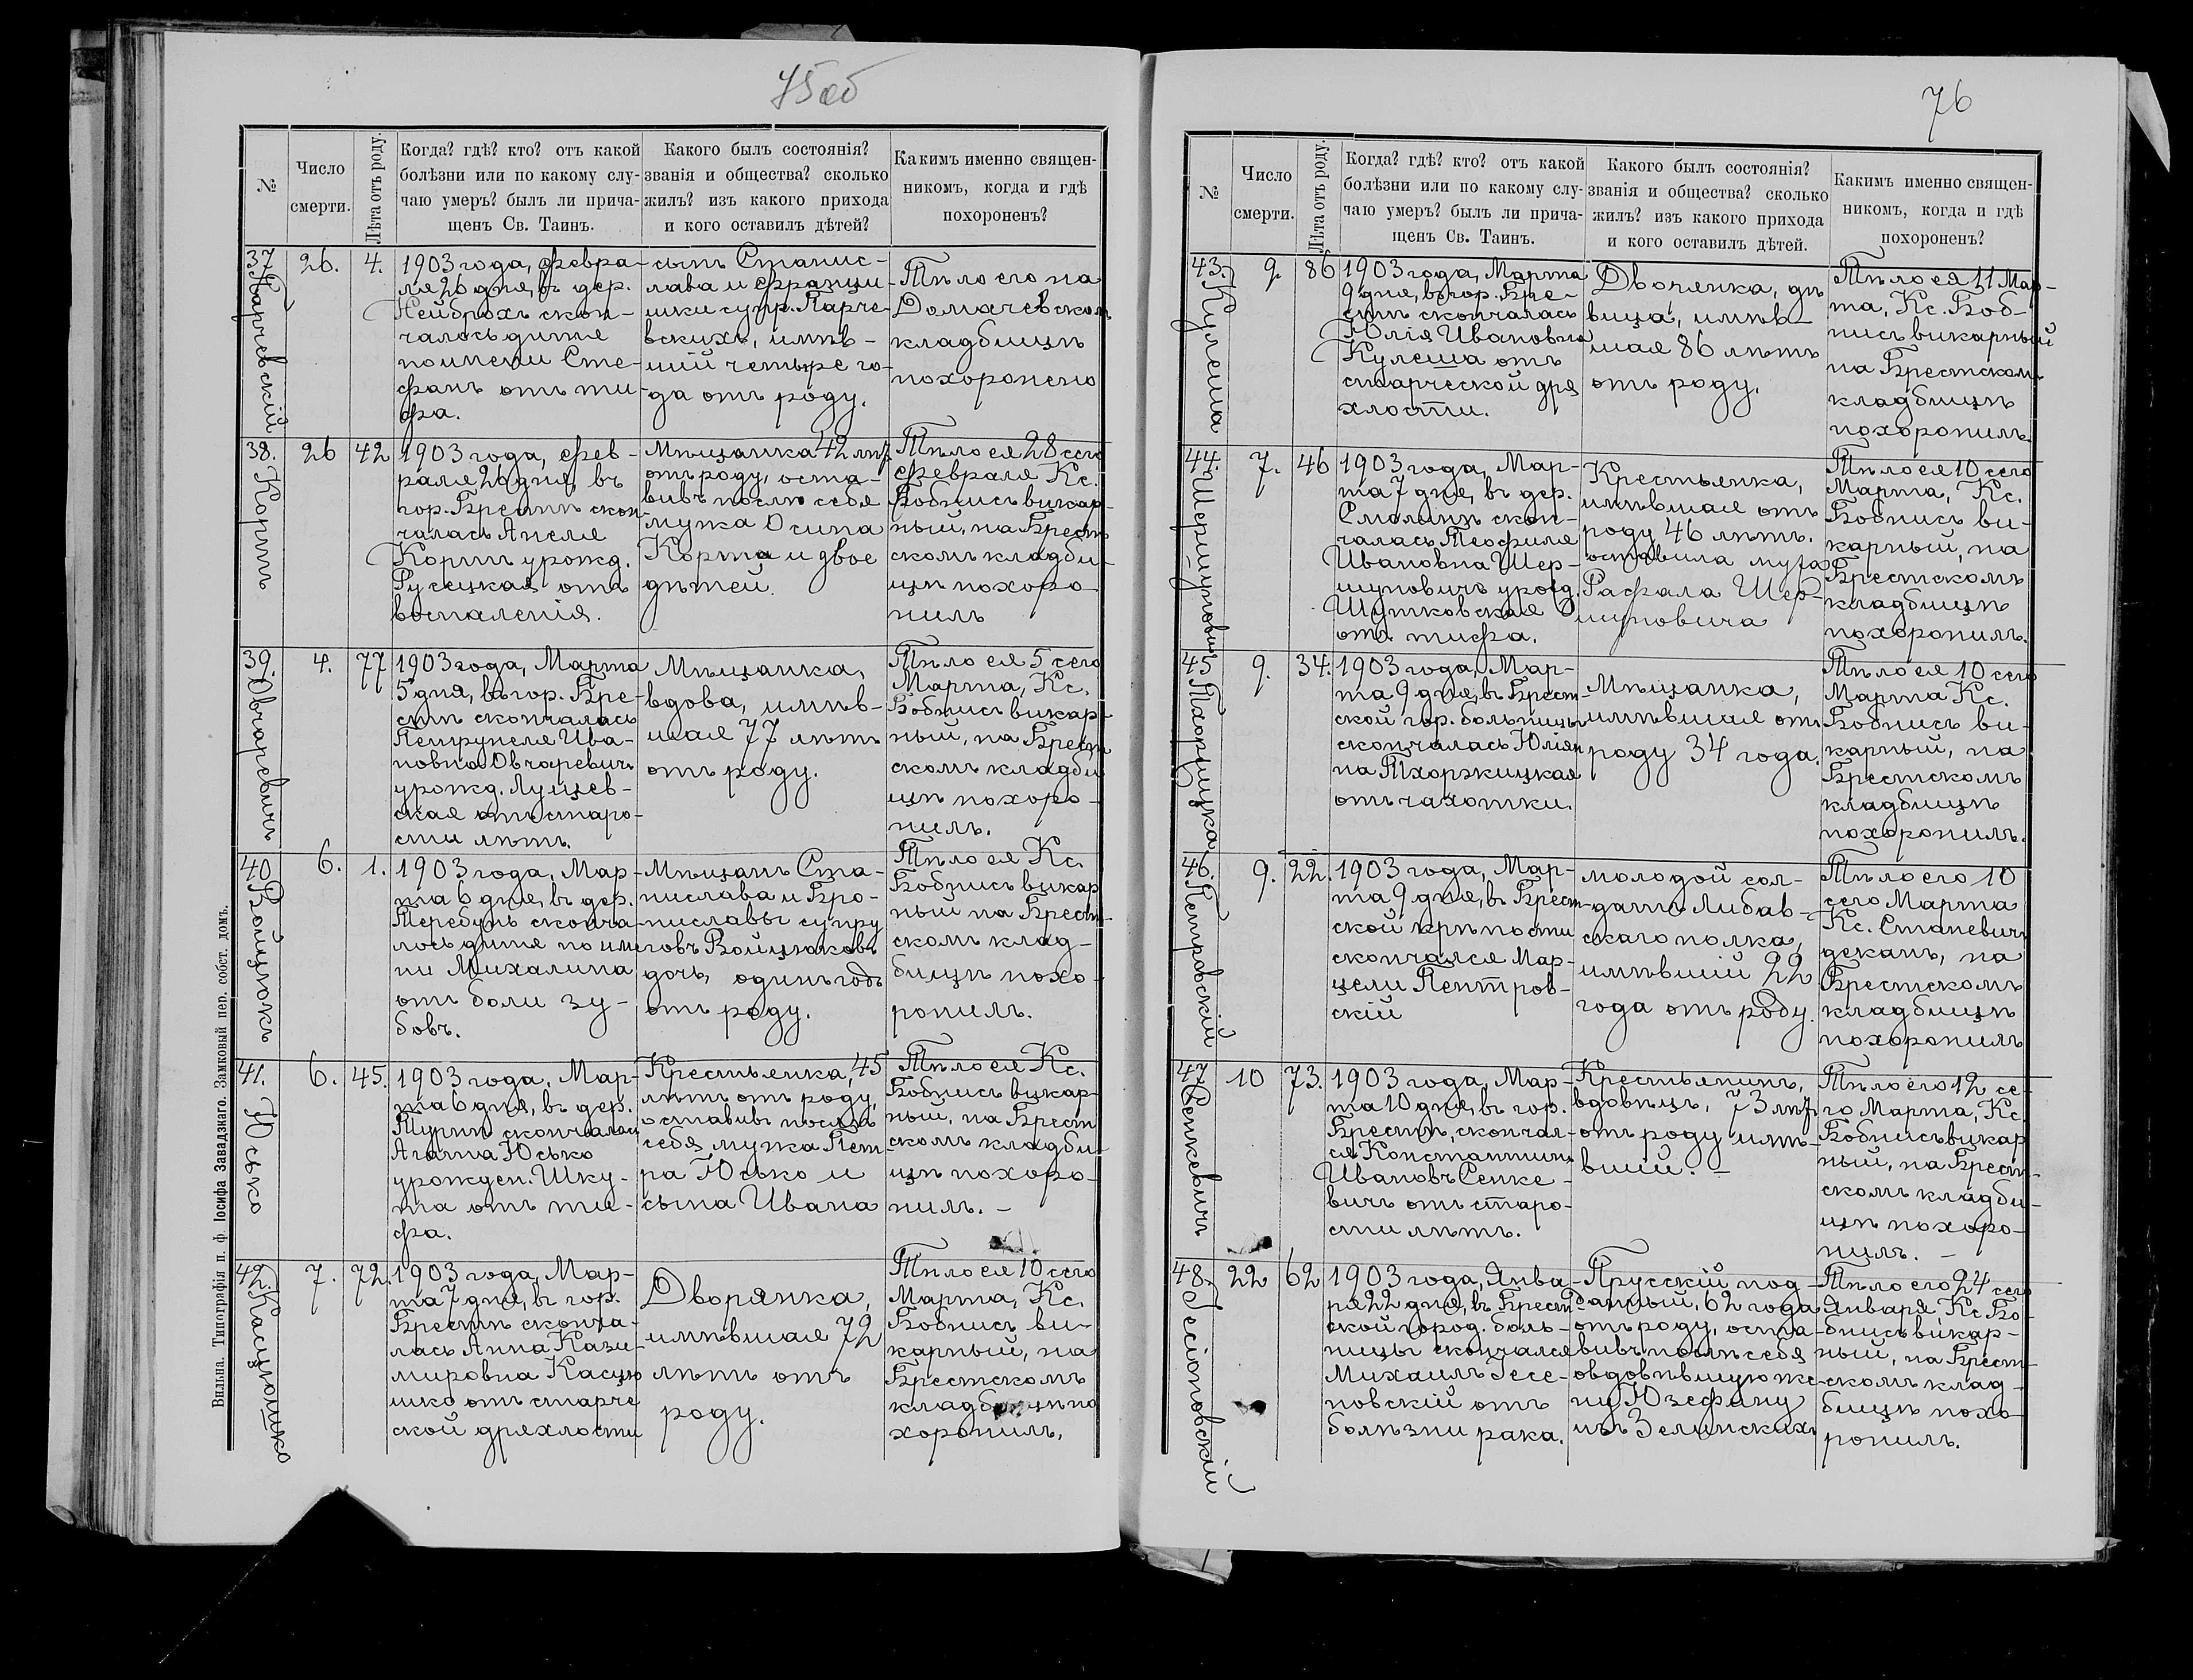 75 об
№
Число
смерти.
Лѣта отъ роду.
Когда? гдѣ? кто? отъ какой
болѣзни или по какому слу-
чаю умеръ? былъ ли прича-
щенъ Св. Таинъ.
Какого былъ состоянія?
званія и общества? сколько
жилъ? изъ какого прихода
и кого оставилъ дѣтей?
Какимъ именно священ-
никомъ, когда и гдѣ
похороненъ?
37.
Парчевскій
26.
4.
1903 года, февра-
ля 26 дня, въ дер.
Нейброхъ скон-
чалось дитя
по имени Сте-
фанъ отъ ти-
фа.
сынъ Станис-
лава и Францы-
шки супр. Парче-
вскихъ, имѣв-
шій четыре го-
да отъ роду.
Тѣло его на
Домачевском
кладбищѣ
похоронено
38.
Кортъ
26
42
1903 года, фев-
раля 26 дня, въ
гор. Брестѣ скон-
чалась Анеля
Кортъ урожд.
Ручецкая отъ
воспаленія.
Мѣщанка 42 лѣт
отъ роду, оста-
вивъ послѣ себя
мужа Осипа
Корта и двое
дѣтей.
Тѣло ея 28 сего
февраля Кс.
Бобнисъ викар-
ный, на Брест
скомъ кладби-
щѣ похоро-
нилъ
39.
Овчаревичъ
4.
77
1903 года, Марта
5 дня, въ гор. Бре-
стѣ скончалась
Петрунеля Ива-
новна Овчаревичъ
урожд. Лущев-
ская отъ старо-
сти лѣтъ.
Мѣщанка,
вдова, имѣв-
шая 77 лѣтъ
отъ роду.
Тѣло ея 5 сего
Марта, Кс.
Бобнисъ викар-
ный, на Брест
скомъ кладби
щѣ похоро-
нилъ.
40
Войцюкъ
6.
1.
1903 года, Мар-
та 6 дня, въ дер.
Теребунь сконча-
лось дитя по име
ни Михалина
отъ боли зу-
бовъ.
Мѣщанъ Ста-
нислава и Бро-
ниславы супру
говъ Войцюковъ
дочь, одинъ годъ
отъ роду.
Тѣло ея Кс.
Бобнисъ викар
ный на Брест-
скомъ клад-
бищѣ похо-
ронилъ.
41.
Юсько
6.
45.
1903 года, Мар-
та 6 дня, въ дер.
Турнѣ скончалас
Агата Юсько
урожден. Шку-
та отъ ти-
фа.
Крестьянка, 45
лѣтъ отъ роду,
оставивъ послѣ
себя мужа Пет-
ра Юсько и
сына Ивана
Тѣло ея Кс.
Бобнисъ викар-
ный, на Брест
скомъ кладби-
щѣ похоро-
нилъ. –
42.
Касцюшко
7.
72.
1903 года, Мар-
та 7 дня, въ гор.
Брестѣ сконча-
лась Анна Кази-
мировна Касцю
шко отъ старче
ской дряхлости
Дворянка,
имѣвшая 72
лѣтъ отъ
роду.
Тѣло ея 10 сего
Марта, Кс.
Бобнисъ ви-
карный, на
Брестскомъ
кладбищѣ по
хоронилъ.
Вильна. Типографія п. ф. Іосифа Завадзкаго. Замковый пер. собст. домъ.
76
№
Число
смерти.
Лѣта отъ роду.
Когда? гдѣ? кто? отъ какой
болѣзни или по какому слу-
чаю умеръ? былъ ли прича-
щенъ Св. Таинъ.
Какого былъ состоянія?
званія и общества? сколько
жилъ? изъ какого прихода
и кого оставилъ дѣтей.
Какимъ именно священ-
никомъ, когда и гдѣ
похороненъ?
43.
Кулеша
9.
86
1903 года, Марта
9 дня, въ гор. Бре-
стѣ скончалась
Юлія Ивановна
Кулеша отъ
старческой дря
хлости.
Дворянка, дѣ
вица, имѣв-
шая 86 лѣтъ
отъ роду.
Тѣло ея 11 Мар-
та, Кс. Боб-
нисъ викарный
на Брестскомъ
кладбищѣ
похоронилъ.
44.
Шершуновичъ
7.
46
1903 года, Мар-
та 7 дня, въ дер.
Смолинѣ скон-
чалась Теофиля
Ивановна Шер-
шуновичъ урожд.
Шутковская
отъ тифа.
Крестьянка,
имѣвшая отъ
роду 46 лѣтъ.
оставила мужа
Рафала Шер-
шуновича
Тѣло ея 10 сего
Марта, Кс.
Бобнисъ ви-
карный, на
Брестскомъ
кладбищѣ
похоронилъ.
45
Тхоржицка
9.
34.
1903 года, Мар-
та 9 дня, въ Брест-
ской гор. больницѣ
скончалась Юлiян
на Тхоржицкая
отъ чахотки.
Мѣщанка,
имѣвшая отъ
роду 34 года.
Тѣло ея 10 сего
Марта Кс.
Бобнисъ ви-
карный, на
Брестскомъ
кладбищѣ
похоронилъ.
46.
Петровскій
9.
22.
1903 года, Мар-
та 9 дня, въ Брест-
ской крѣпости
скончался Мар-
цели Пентров-
скій
молодой сол-
датъ Либав-
скаго полка,
имѣвшій 22
года отъ роду.
Тѣло его 10
сего Марта
Кс. Станевичъ
деканъ, на
Брестскомъ
кладбищѣ
похоронилъ
47
Сенкевичъ
10
73.
1903 года, Мар-
та 10 дня, въ гор.
Брестѣ, скончал-
ся Константинъ
Ивановъ Сенке-
вичъ отъ старо-
сти лѣтъ.
Крестьянинъ,
вдовецъ, 73 лѣт
отъ роду имѣ-
вшій. –
Тѣло его 12 се-
го Марта, Кс.
Бобнисъ викар
ный, на Брест-
скомъ кладби-
щѣ похоро-
нилъ. –
48.
Гесіоновскій
22
62
1903 года, Янва-
ря 22 дня, въ Брест
ской город. боль-
ницы скончался
Михаилъ Гесе-
новскій отъ
болѣзни рака.
Прусскій под-
данный, 62 года
отъ роду, оста-
вивъ послѣ себя
овдовѣвшую же-
ну Юзефину
изъ Зелинскихъ
Тѣло его 24 сего
Января, Кс. Бо-
бнисъ викар-
ный, на Брест-
скомъ клад-
бищѣ похо-
ронилъ.